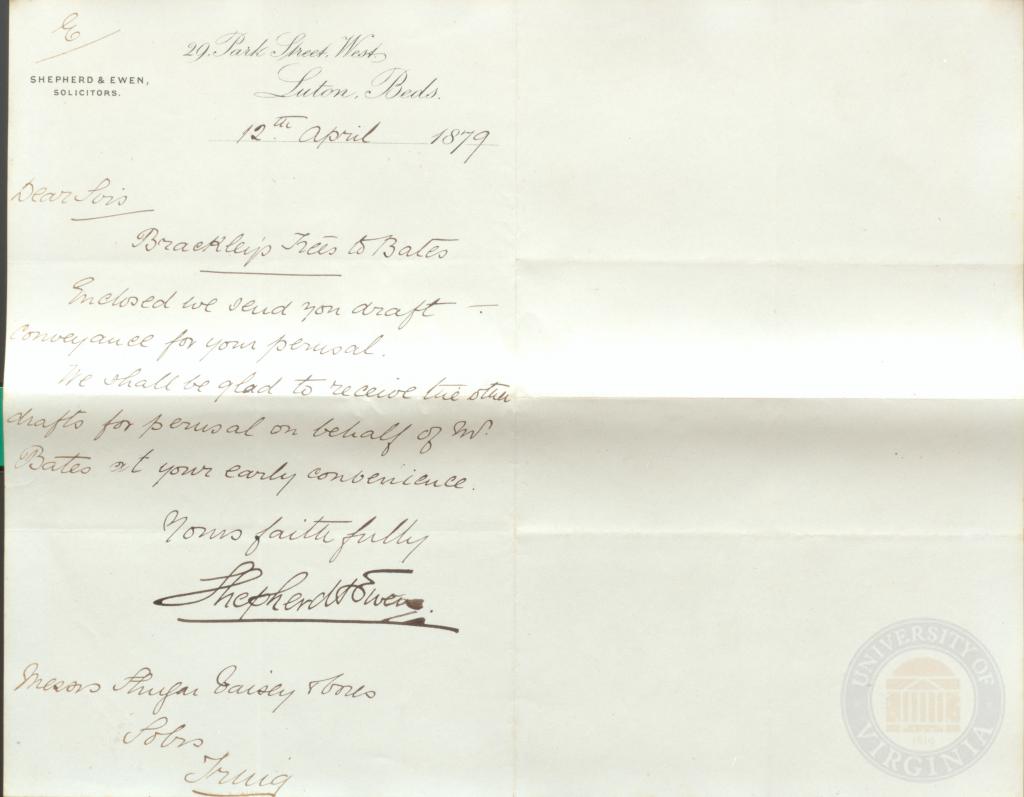 E
29, Park Street, West,
Luton, Beds.
SHEPHERD & EWEN,
SOLICITORS.
12th April 1879
Dear Sirs
Brackley's Trees to Bates
Enclosed we send you draft —
conveyance for your perusal.
We shall be glad to receive the other
drafts for perusal on behalf of Mr.
Bates at your early convenience.
Yours faithfully
Shepherd & Ewen.
Messrs
Solrs
Tring
UNIVERSITY OF VIRGINIA
1819